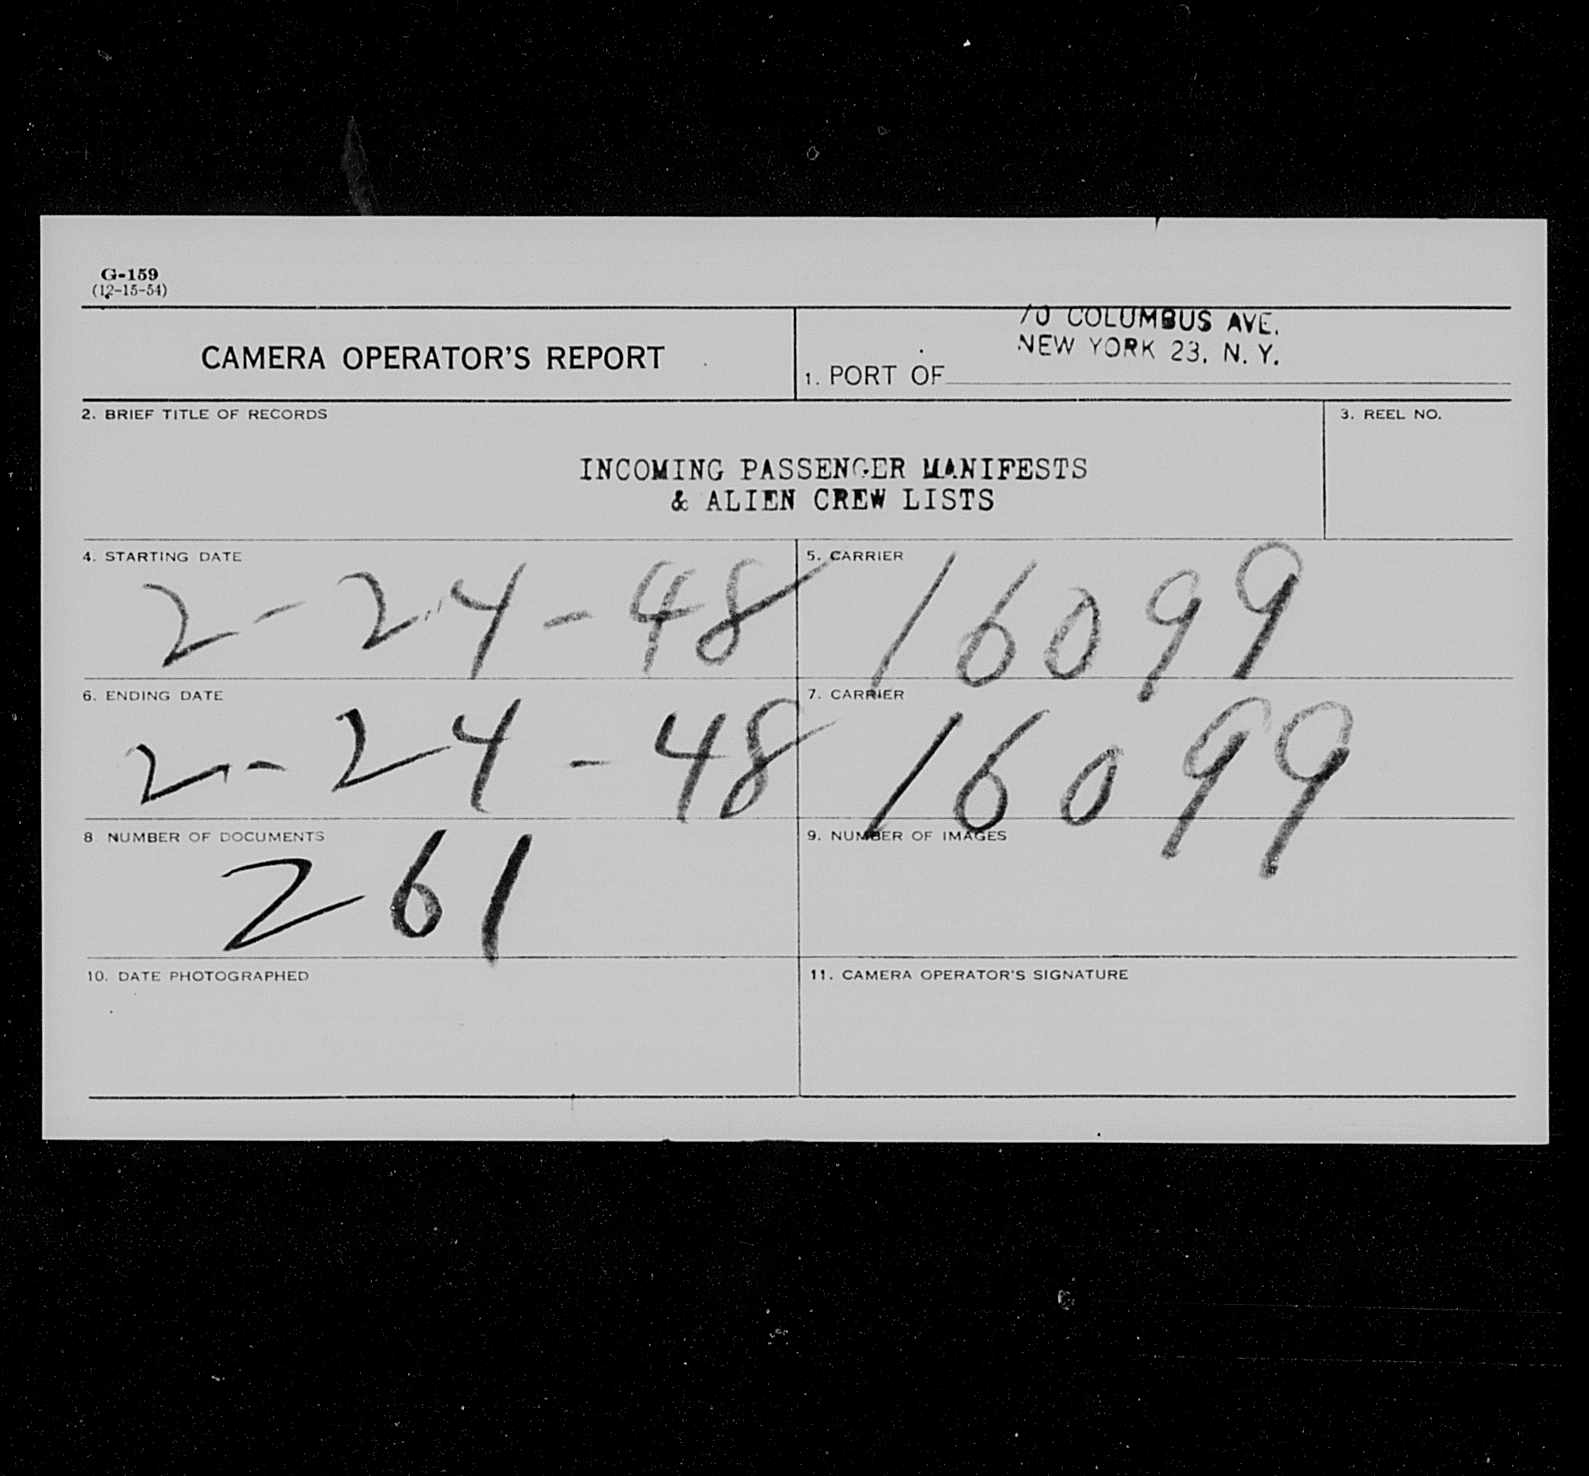 G-159
(12-15-54)
CAMERA OPERATOR'S REPORT
70 COLUMBUS AVE.
NEW YORK 23, N. Y.
1. PORT OF
2. BRIEF TITLE OF RECORDS
3. REEL NO.
INCOMING PASSENGER MANIFESTS
& ALIEN CREW LISTS
4. STARTING DATE
2-24-48
5. CARRIER
16099
6. ENDING DATE
2-24-48
7. CARRIER
16099
8 NUMBER OF DOCUMENTS
261
9. NUMBER OF IMAGES
10. DATE PHOTOGRAPHED
11. CAMERA OPERATOR'S SIGNATURE